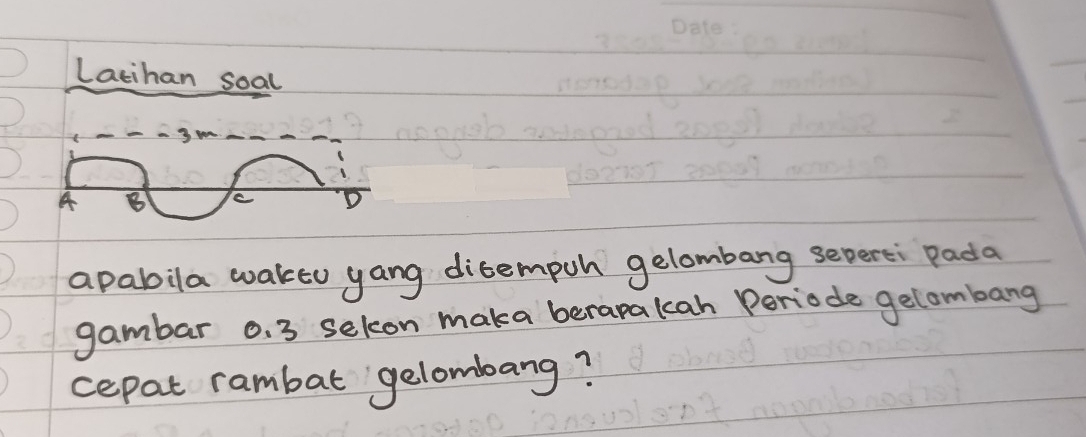 Date :
Latihan soal
3m
A B C D
apabila waktu yang ditempuh gelombang seperti pada
gambar 0.3 sekon maka berapakah Periode gelombang
cepat rambat gelombang?